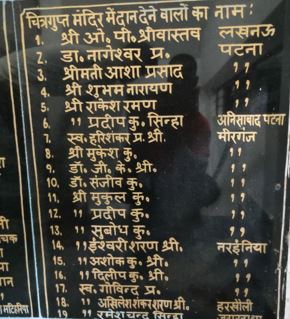 चित्रगुप्त मंदिर में दान देने वालों का नाम:
1. श्री ओ. पी. श्रीवास्तव लखनऊ
2. डा. नागेश्वर प्र. पटना
3. श्रीमती आशा प्रसाद ,,
4. श्री शुभम नारायण ,,
5. श्री राकेश रमण ,,
6. ,, प्रदीप कु. सिन्हा अनिसाबाद पटना
7. स्व. हरिशंकर प्र. श्री. मीरगंज
8. श्री मुकेश कु. ,,
9. डॉ. जी. के. श्री. ,,
10. डॉ. संजीव कु. ,,
11. श्री मुकुल कु. ,,
12. ,, प्रदीप कु. ,,
13. ,, सुबोध कु. ,,
14. ,, ईश्वरी शरण श्री. नरईनिया
15. ,, अशोक कु. श्री. ,,
16. ,, दिलीप कु. श्री. ,,
17. स्व. गोविन्द प्र. ,,
18. ,, अखिलेश शंकर शरण श्री. हरखौली
19. ,, रमेश चन्द्र सिन्हा